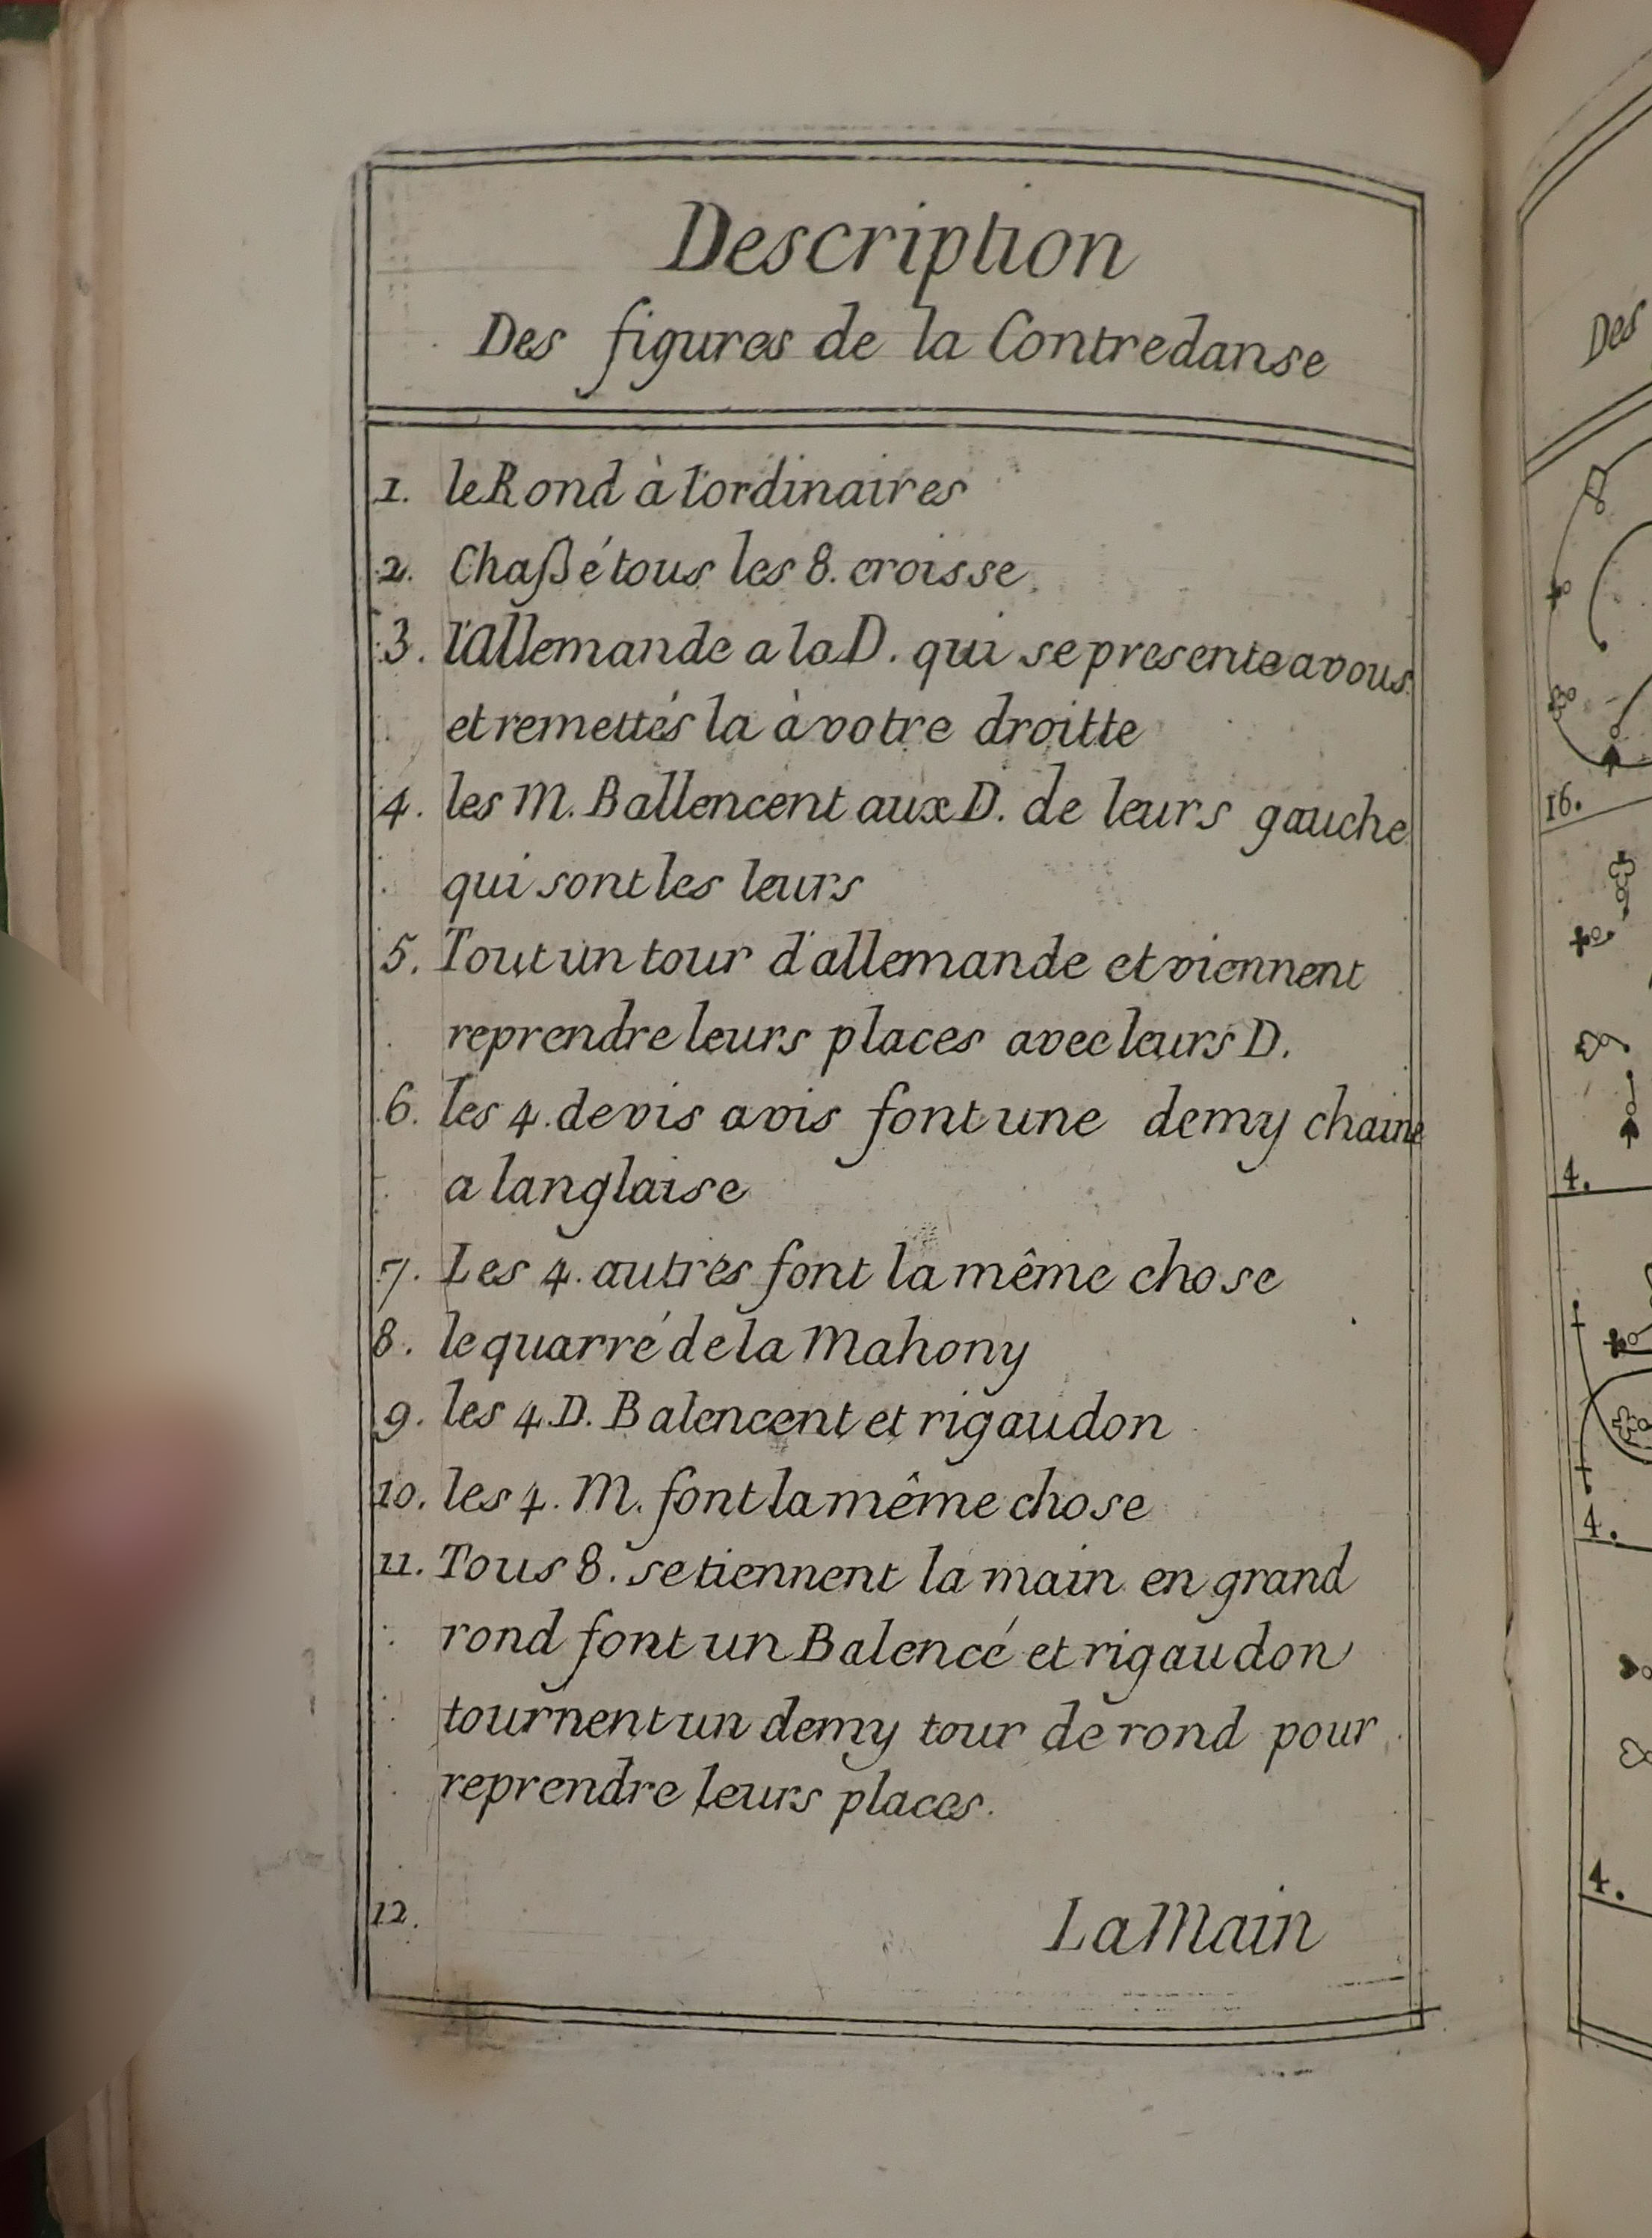 Description
Des figures de la Contredanse
1. le Rond à l'ordinaires
2. Chaßé tous les 8. croisse
3. l'Allemande a la D. qui se presente a vous
et remettés la à votre droitte
4. les M. Ballencent aux D. de leurs gauche
qui sont les leurs
5. Tout un tour d'allemande et viennent
reprendre leurs places avec leurs D.
6. les 4. de vis a vis font une demy chaine
a langlaise
7. Les 4. autres font la même chose
8. le quarré de la Mahony
9. les 4 D. Balencent et rigaudon
10. les 4. M. font la même chose
11. Tous 8. se tiennent la main en grand
rond font un Balencé et rigaudon
tournent un demy tour de rond pour
reprendre leurs places.
12. La Main
Des
16.
4.
4.
4.